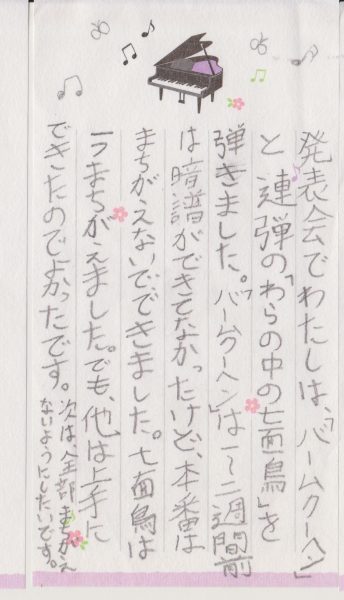 発表会でわたしは、「バームクーヘン」
と連弾の「わらの中の七面鳥」を
弾きました。「バームクーヘン」は一〜二週間前
は暗譜ができてなかったけど、本番は
まちがえないでできました。七面鳥は
一つまちがえました。でも、他は上手に
できたのでよかったです。次は全部まちがえ
ないようにしたいです。